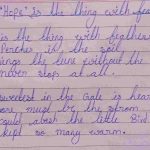 "Hope" is the thing with fea
is the thing with feather
Perches in the soul
ings the tune without the
never stops at all.
sweetest in the Gale is hear
ore must be the storm
could abash the little Bird
kept so many warm.